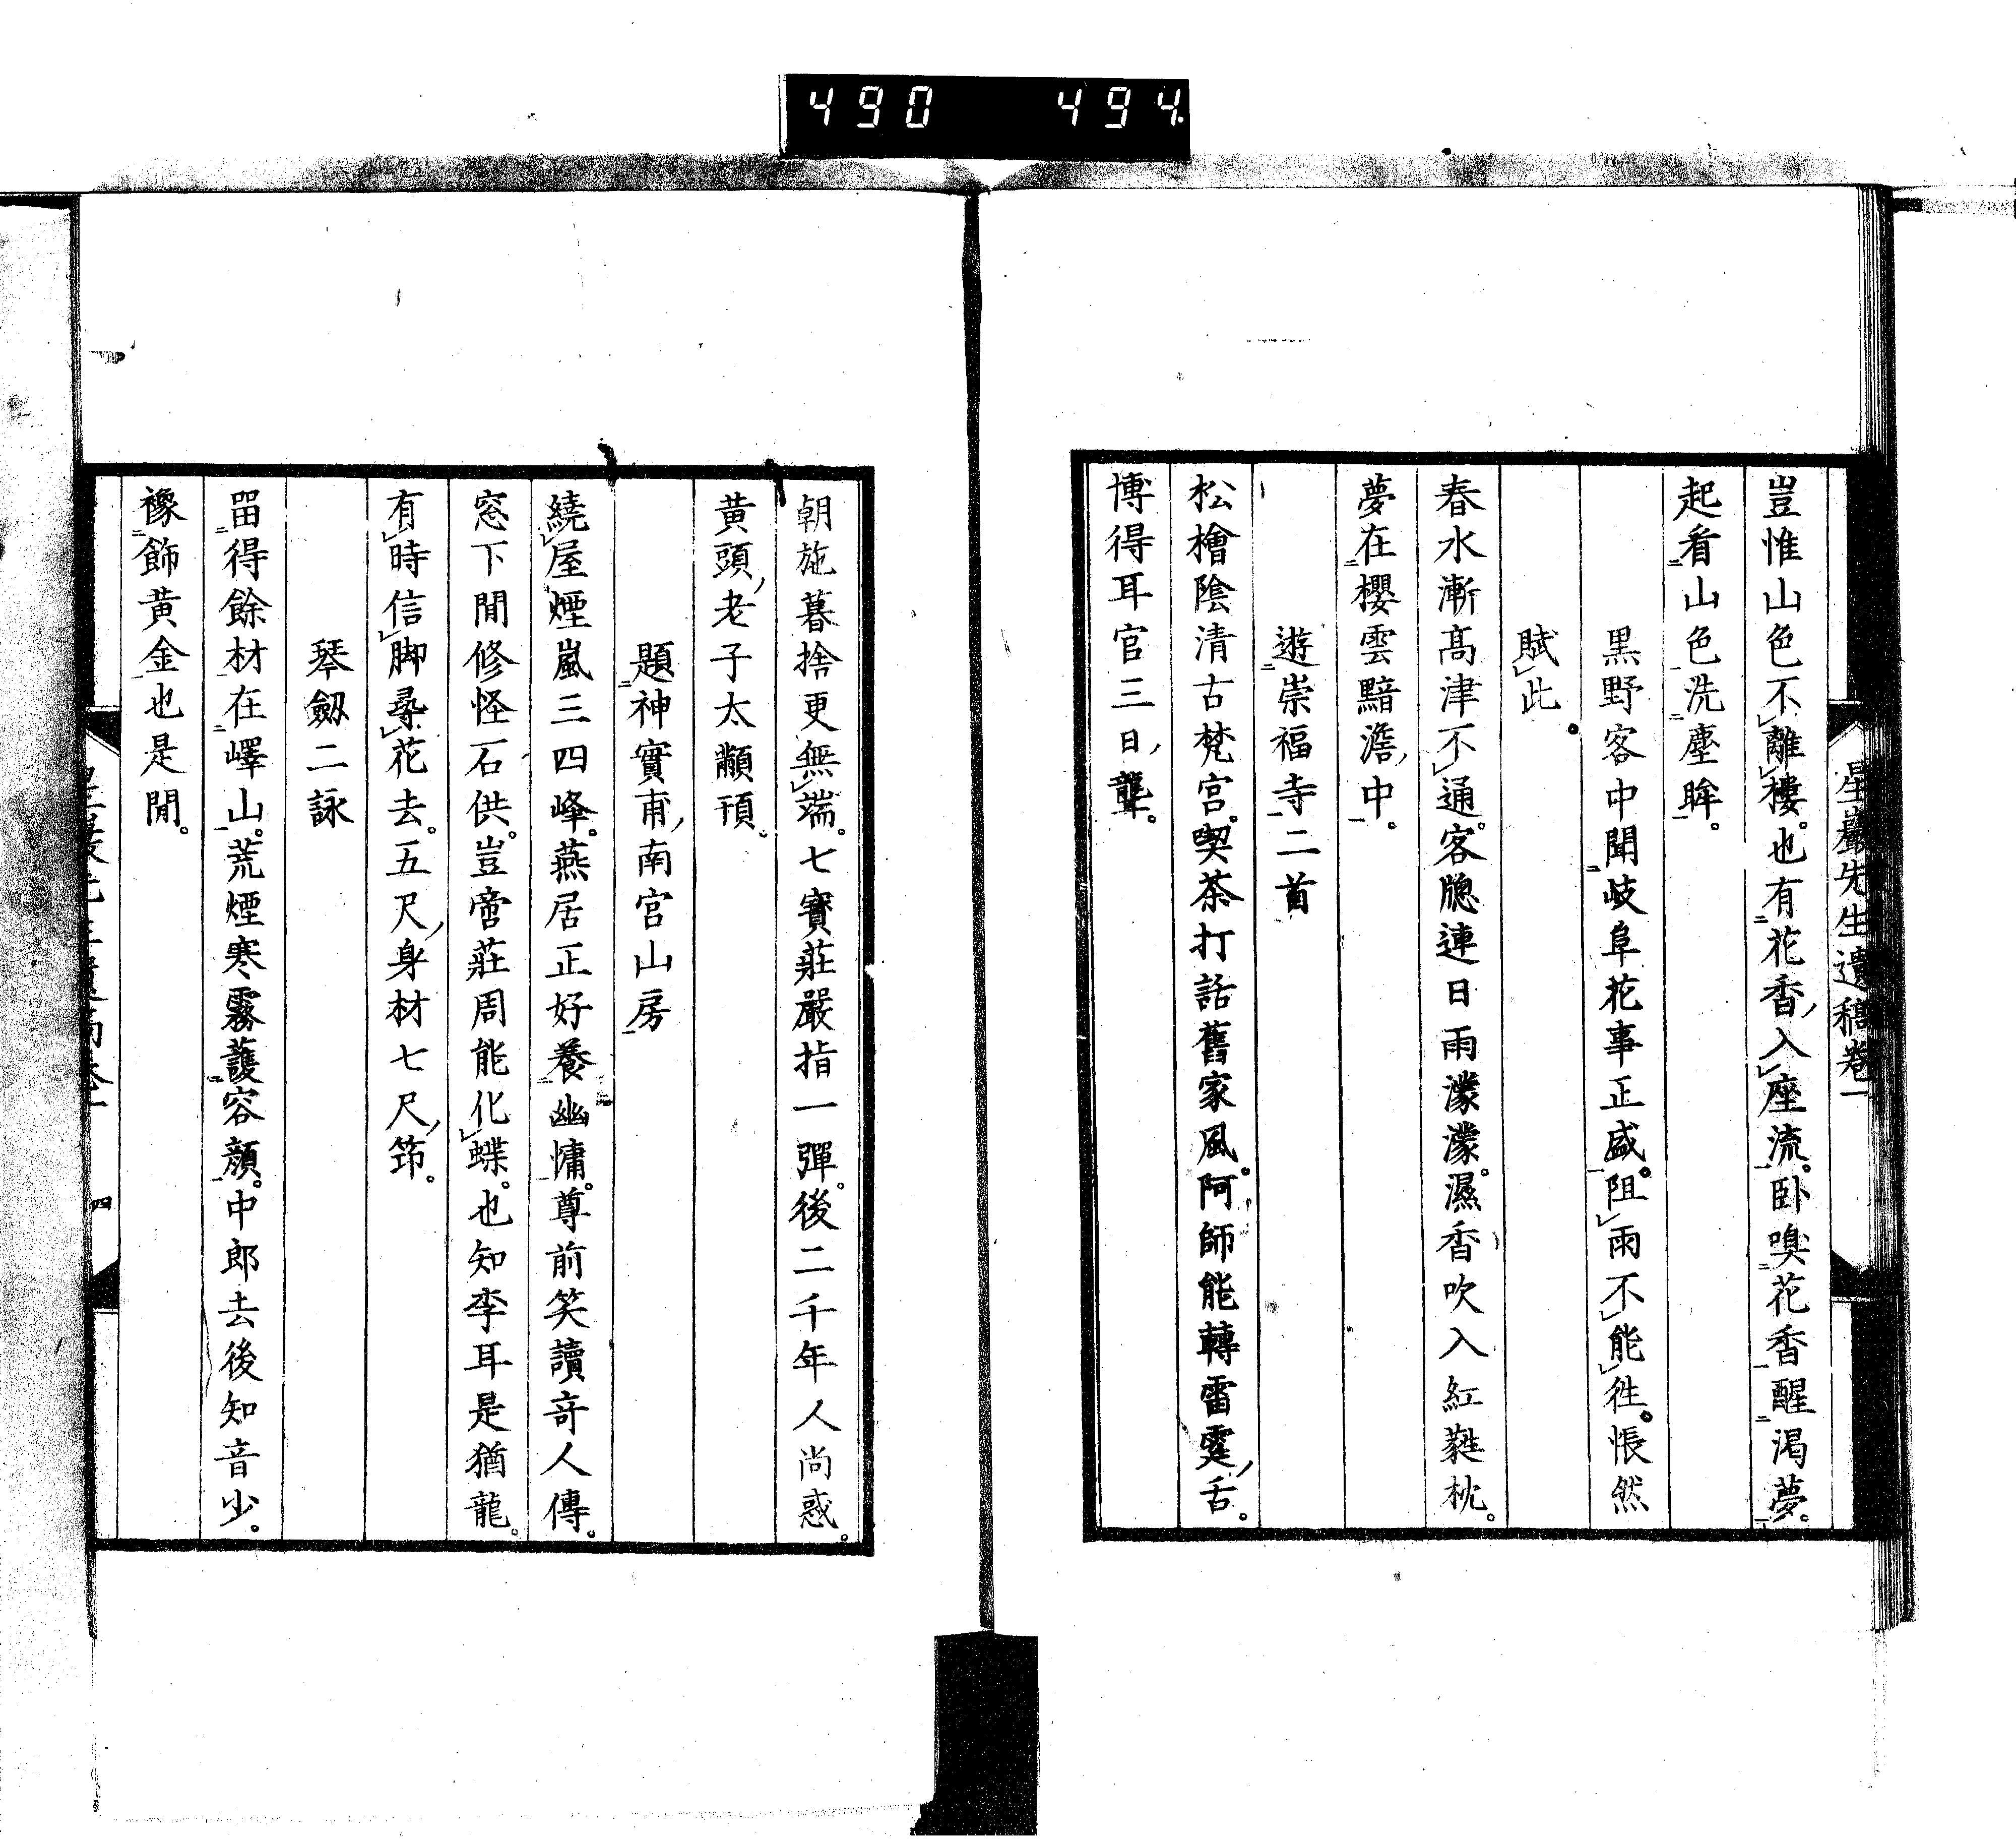 490 494
星巖先生遺稿卷一
豈惟山色不離樓。也有花香入座流。卧嗅花香醒渴夢。
起看山色洗塵眸。
黒野客中聞岐阜花事正盛。阻雨不能徃。悵然
賦此。
春水漸髙津不通。客牕連日雨濛濛。濕香吹入紅蕤枕。
夢在櫻雲黯澹中。
遊崇福寺二首
松檜陰清古梵宮。喫茶打話舊家風。阿師能轉雷霆舌。
博得耳官三日聾。
朝施暮捨更無端。七寳莊嚴指一彈。後二千年人尚惑。
黄頭老子太顢頇。
題神實甫南宮山房
繞屋煙嵐三四峰。燕居正好養幽慵。尊前笑讀竒人傳。
窓下閒修怪石供。豈啻莊周能化蝶。也知李耳是猶龍。
有時信脚尋花去。五尺身材七尺筇。
琴劔二詠
畱得餘材在嶧山。荒煙寒霧護容顔。中郎去後知音少。
襐飾黄金也是閒。
四